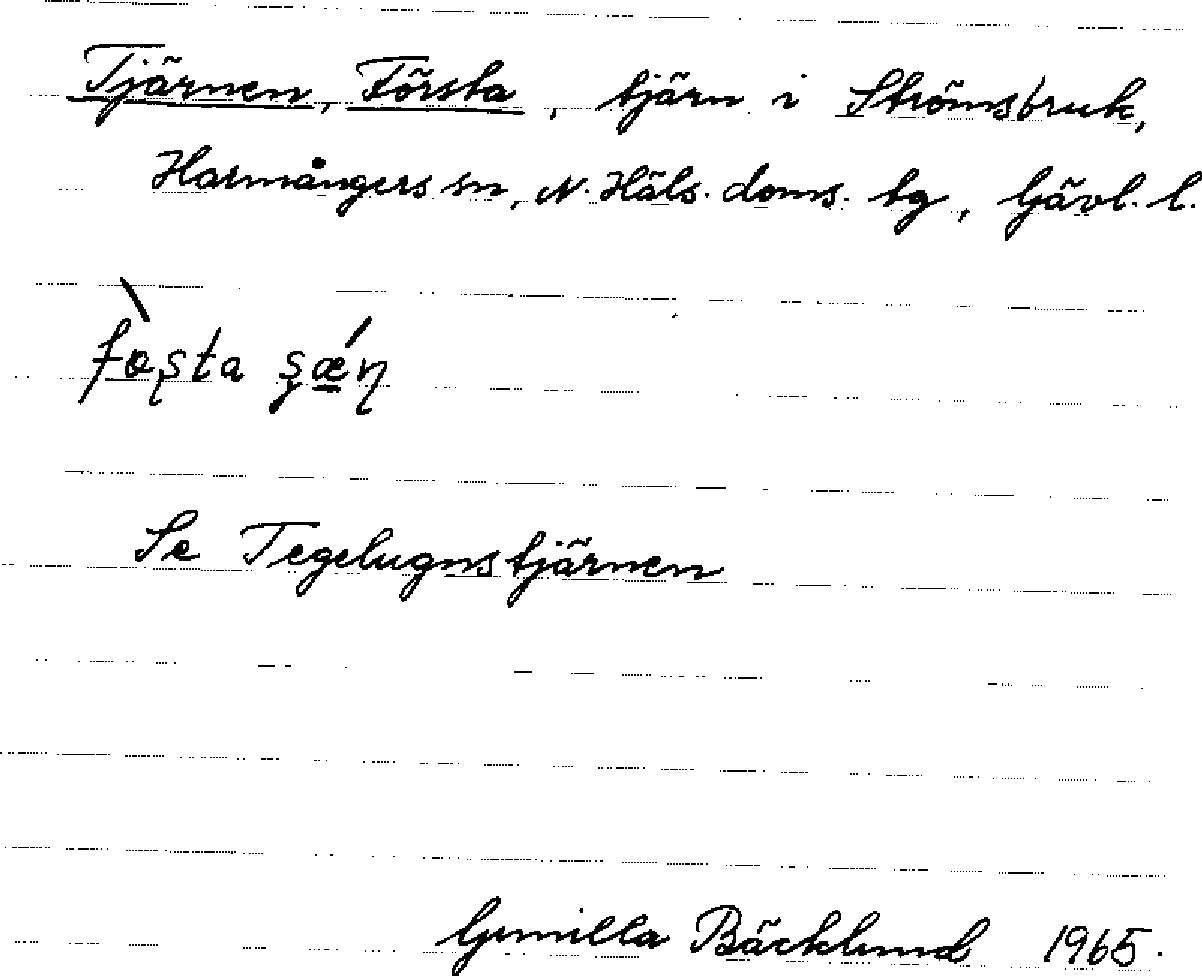 Tjärnen, Första, tjärn i Strömsbruk,
Harmångers sn, N. Häls. doms. tg, Gävl. l.
Se Tegelugnstjärnen
Gunilla Bäcklund 1965.